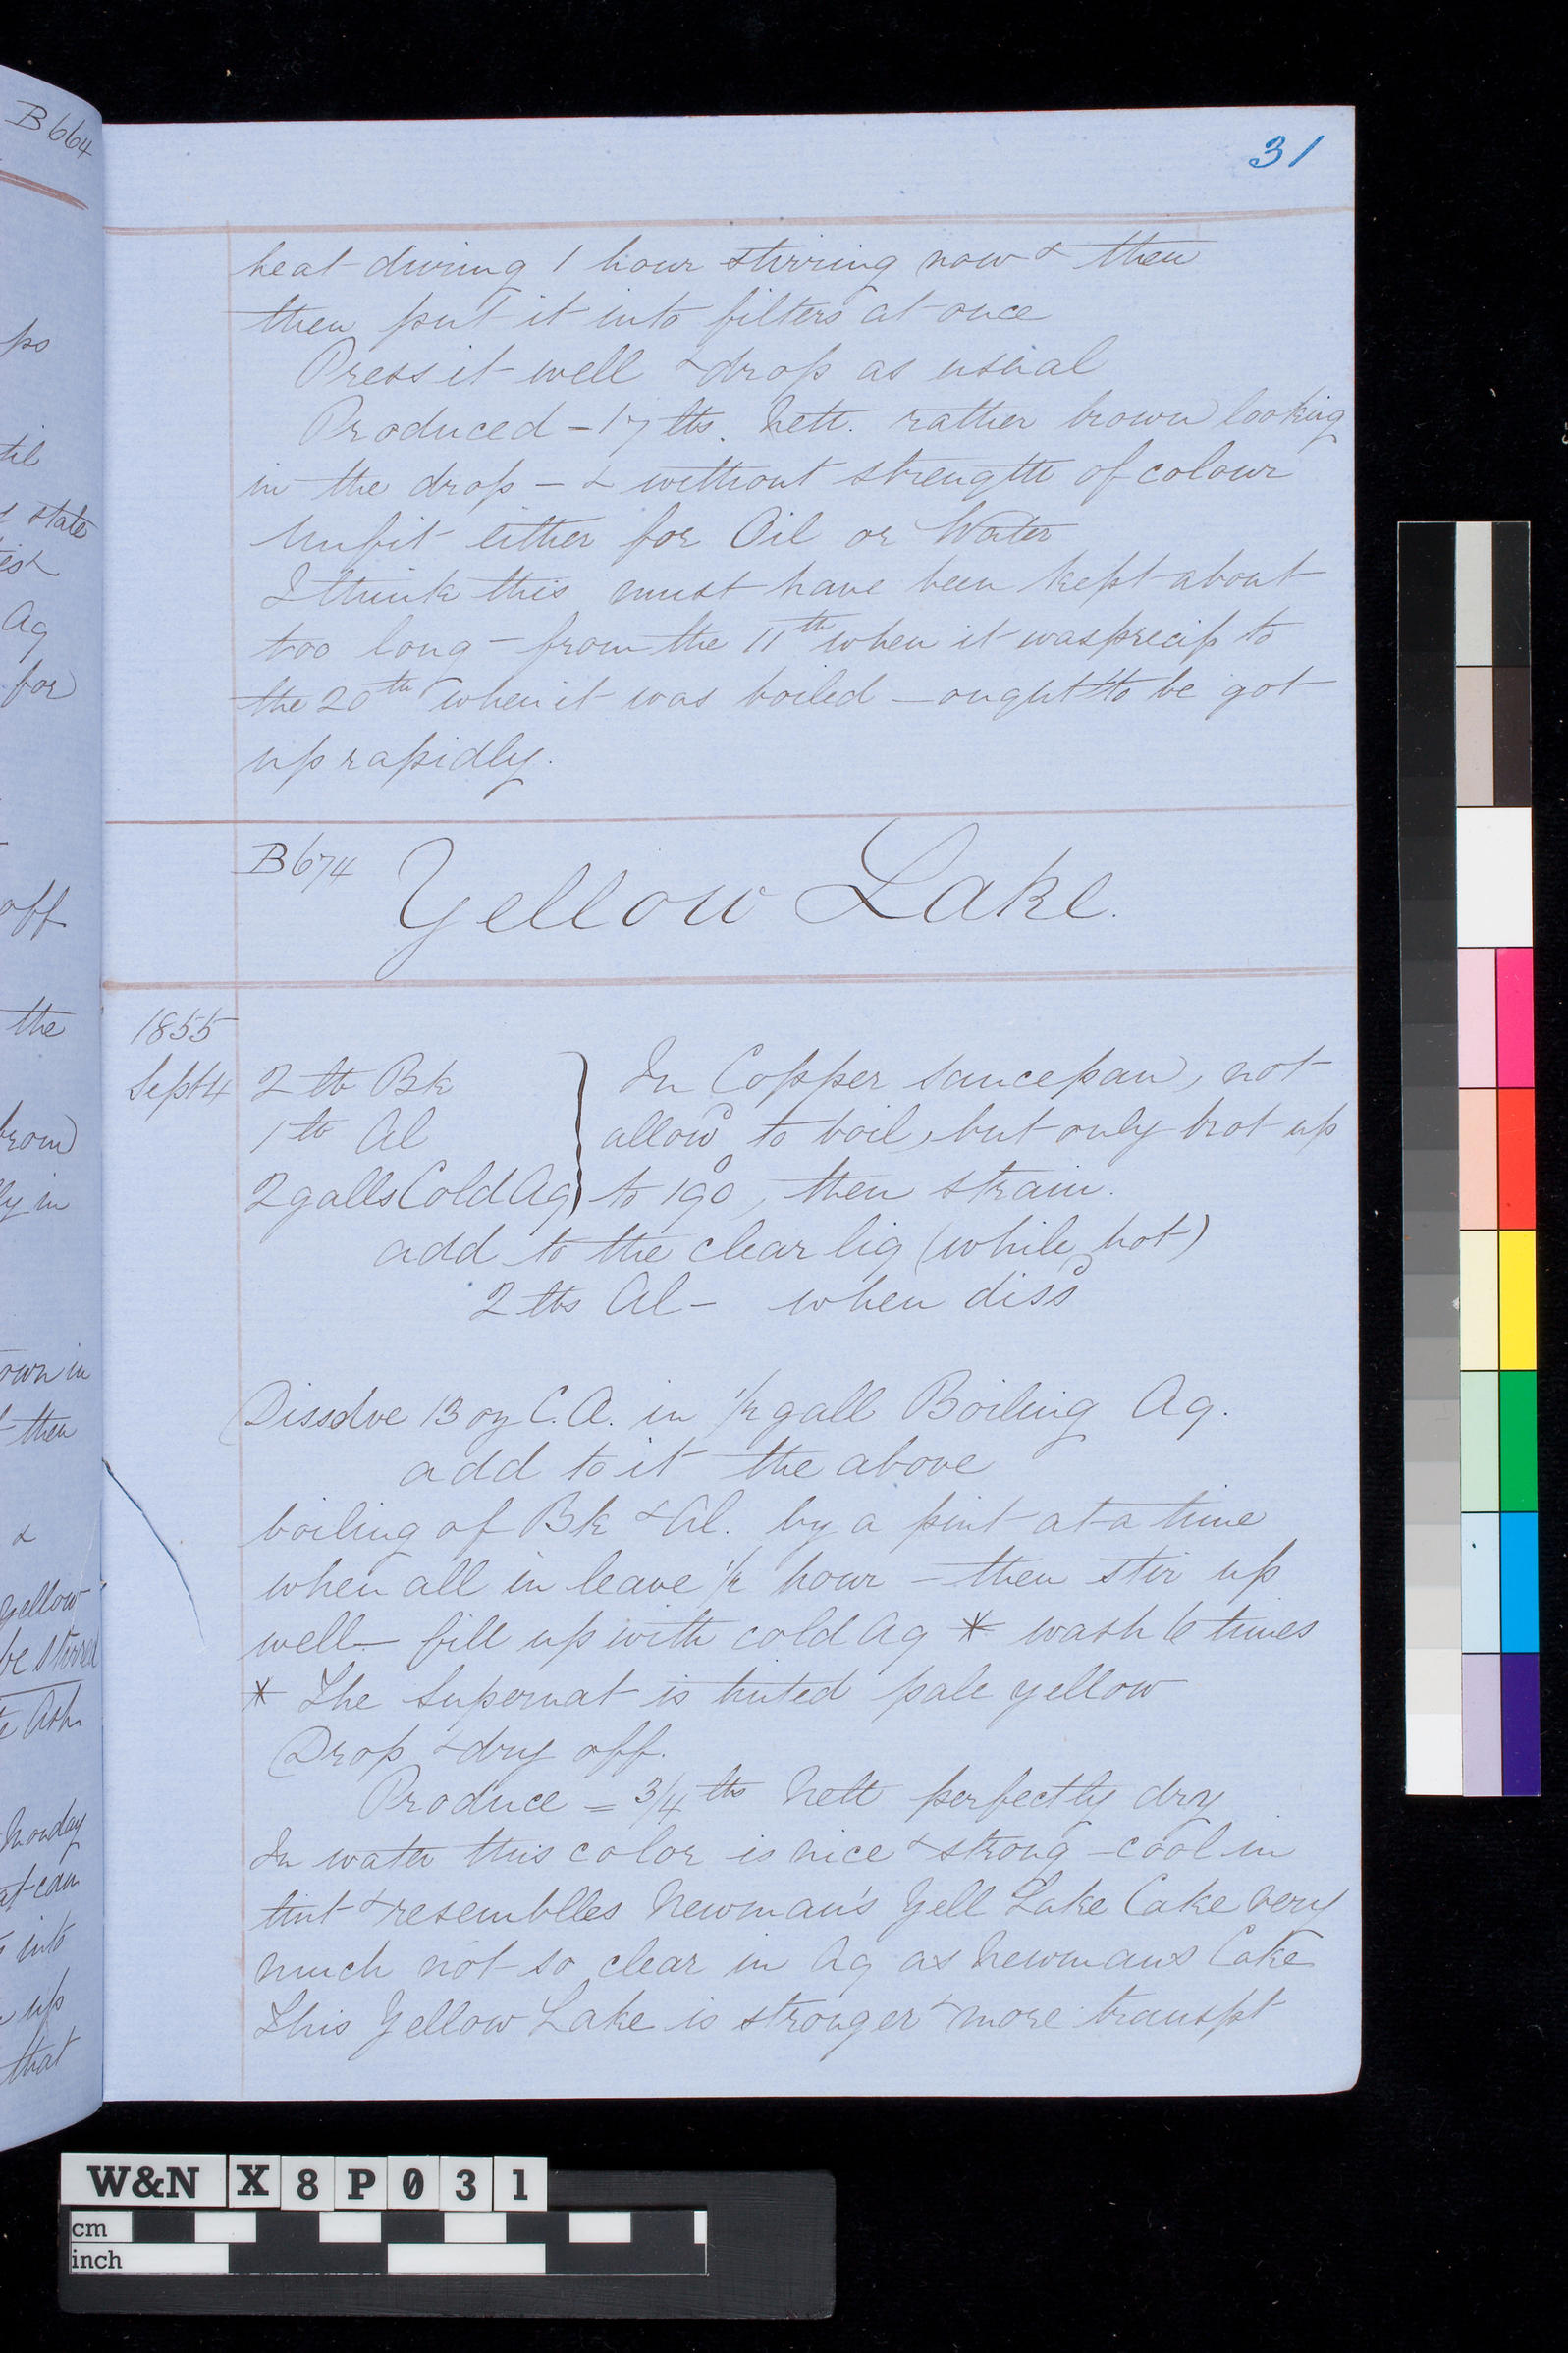 B664
31
heat during 1 hour stirring now & then
then put it into filters at once
Press it well & drop as usual
Produced - 17 lbs. Nett. rather brown looking
in the drop - & without strength of colour
Unfit either for Oil or Water
I think this must have been kept about
too long - from the 11th when it was precip to
the 20th when it was boiled - ought to be got
up rapidly.
B674 Yellow Lake.
1855
Sept 4 2 lb Bk } In Copper saucepan, not
1 lb Al allowd to boil, but only brot up
2 galls Cold Aq to 190°, then strain.
add to the clear liq (while hot)
2 lbs Al - when dissd
Dissolve 13 oz C.A. in 1/2 gall Boiling Aq.
add to it the above
boiling of Bk & Al. by a pint at a time
when all in leave 1/2 hour - then stir up
well - fill up with cold Aq * wash 6 times
* The Supernat is tinted pale yellow
Drop & dry off.
Produce = 3/4 lbs Nett perfectly dry
In water this color is nice & strong - cool in
tint & resemblles Newman's Yell Lake Cake very
much not so clear in Aq as Newmans Cake
This Yellow Lake is stronger & more transpt
W&N X8P031
cm
inch